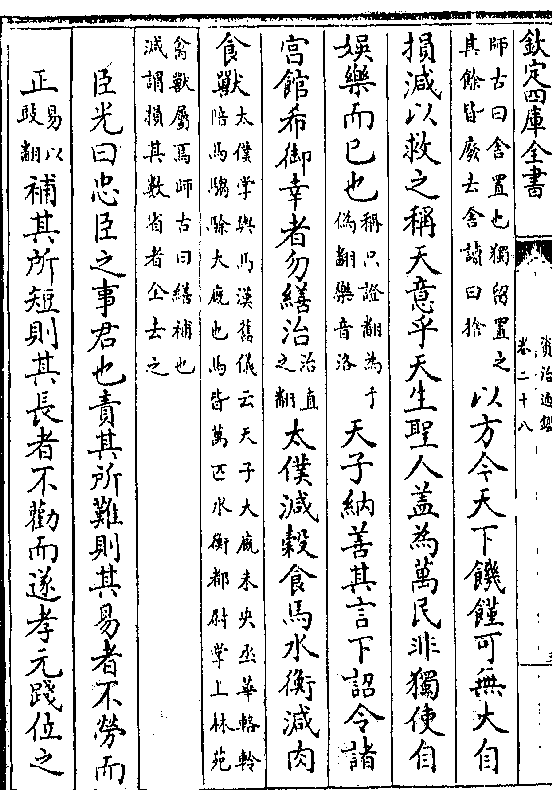 欽定四庫全書
資治通鑑
卷二十八
師古曰舍置也獨留置之
其餘皆廢去舍讀曰捨
以方今天下饑饉可無大自
損減以救之稱天意乎天生聖人蓋為萬民非獨使自
娛樂而已也
稱尺證翻為于
偽翻樂音洛
天子納善其言下詔令諸
宮館希御幸者勿繕治
治直
之翻
太僕減穀食馬水衡減肉
食獸
太僕掌輿馬漢舊儀云天子大廐未央丞華輅軨
陪馬騶駼大廐也馬皆萬匹水衡都尉掌上林苑
禽獸屬焉師古曰繕補也
減謂損其數省者全去之
臣光曰忠臣之事君也責其所難則其易者不勞而
正
易以
豉翻
補其所短則其長者不勸而遂孝元踐位之